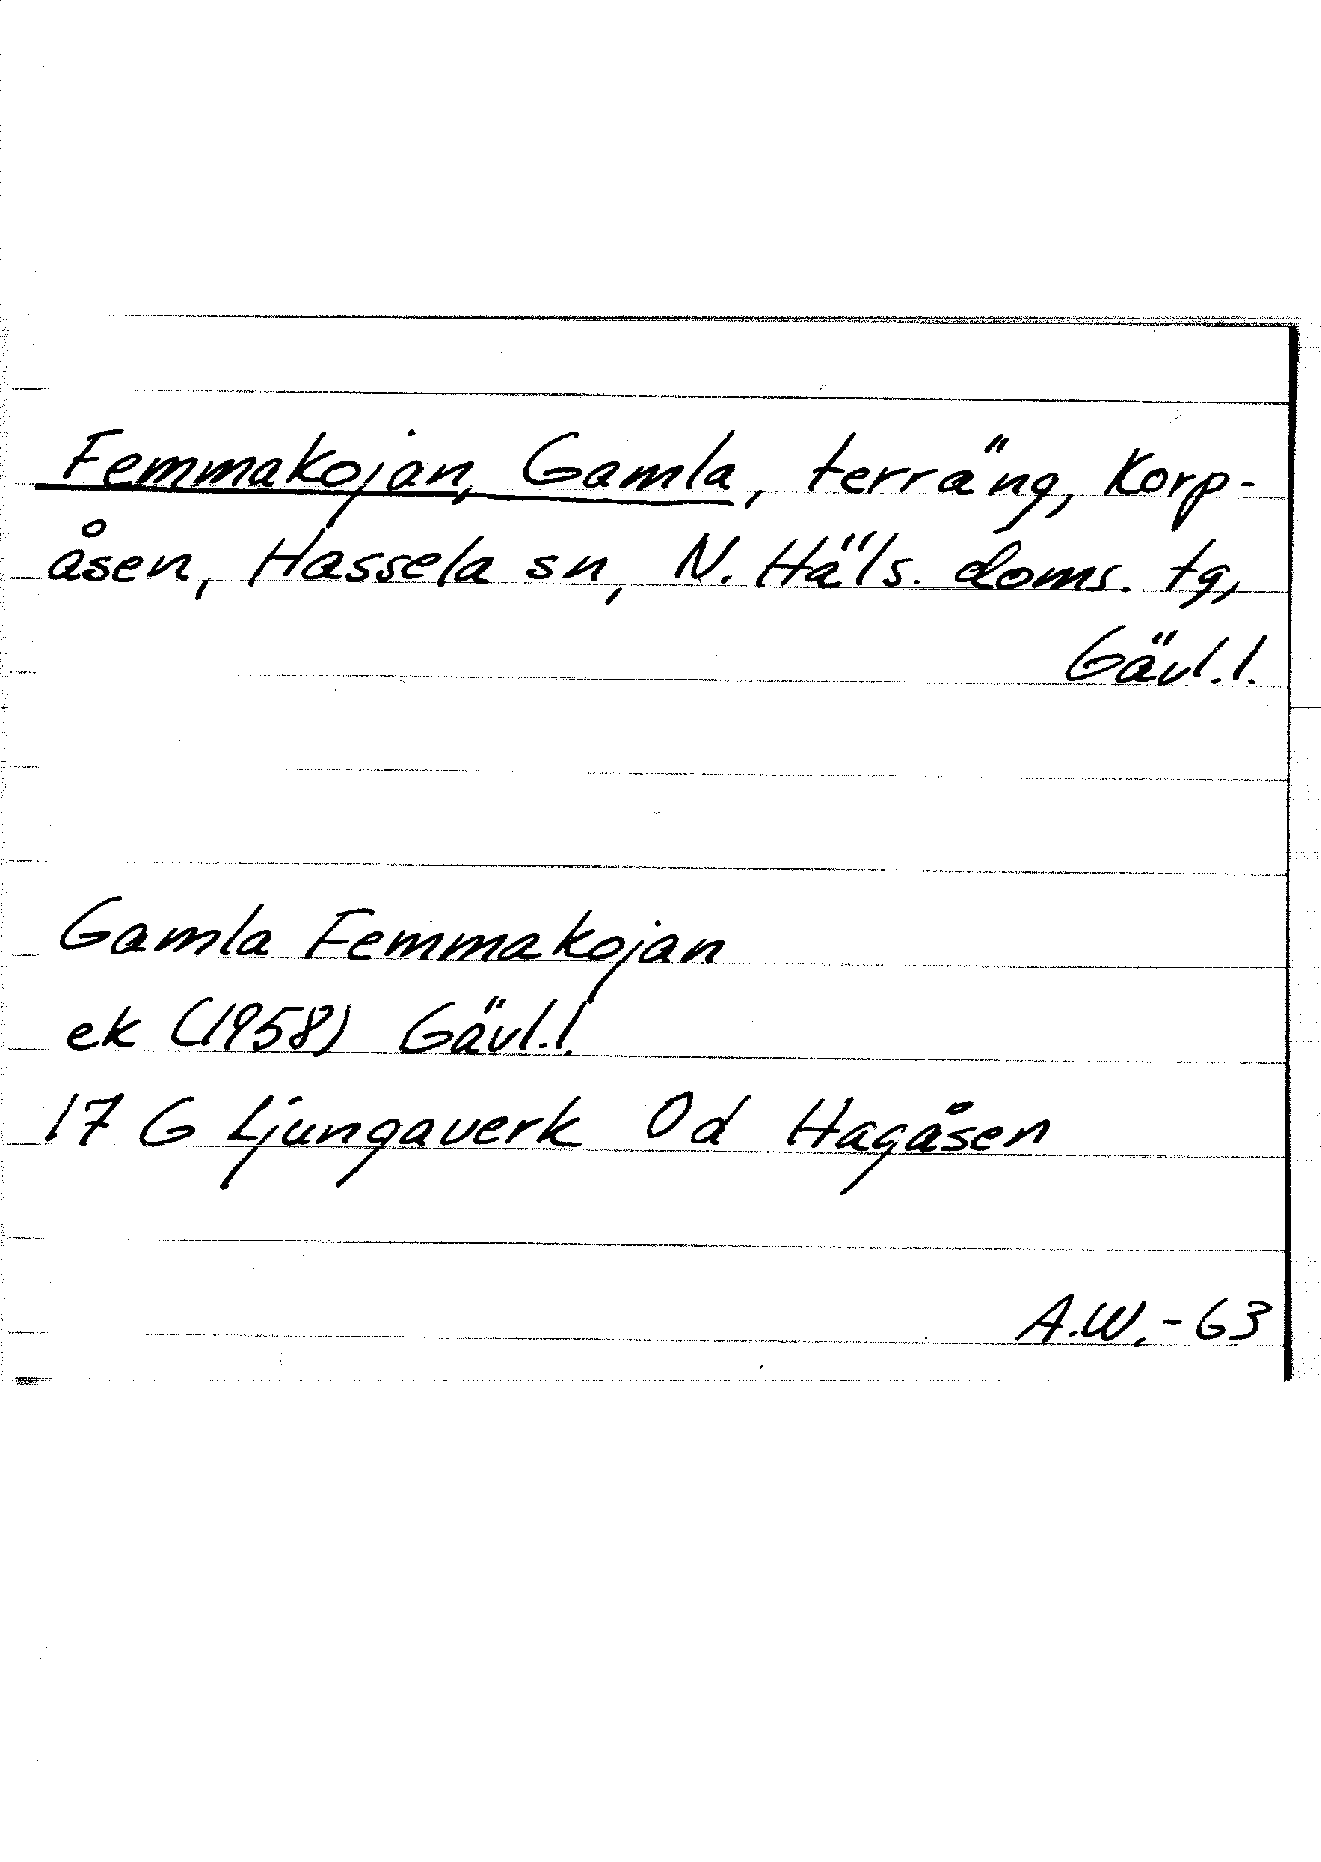 Femmakojan, Gamla, terräng, Korp-
åsen, Hassela sn, N. Häls. doms. tg,
Gävl.l.
Gamla Femmakojan
ek (1958) Gävl.l.
17 G Ljungaverk 0d Hagåsen
A.W.-63